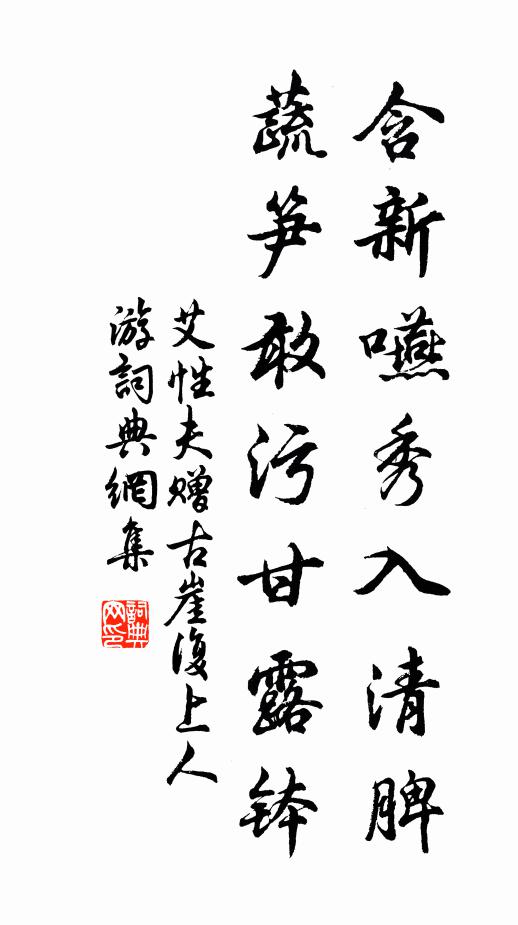 含新嚥秀入清脾
蔬笋敢污甘露鉢
艾性夫赠古崖復上人
游詞典網集
詞典網印